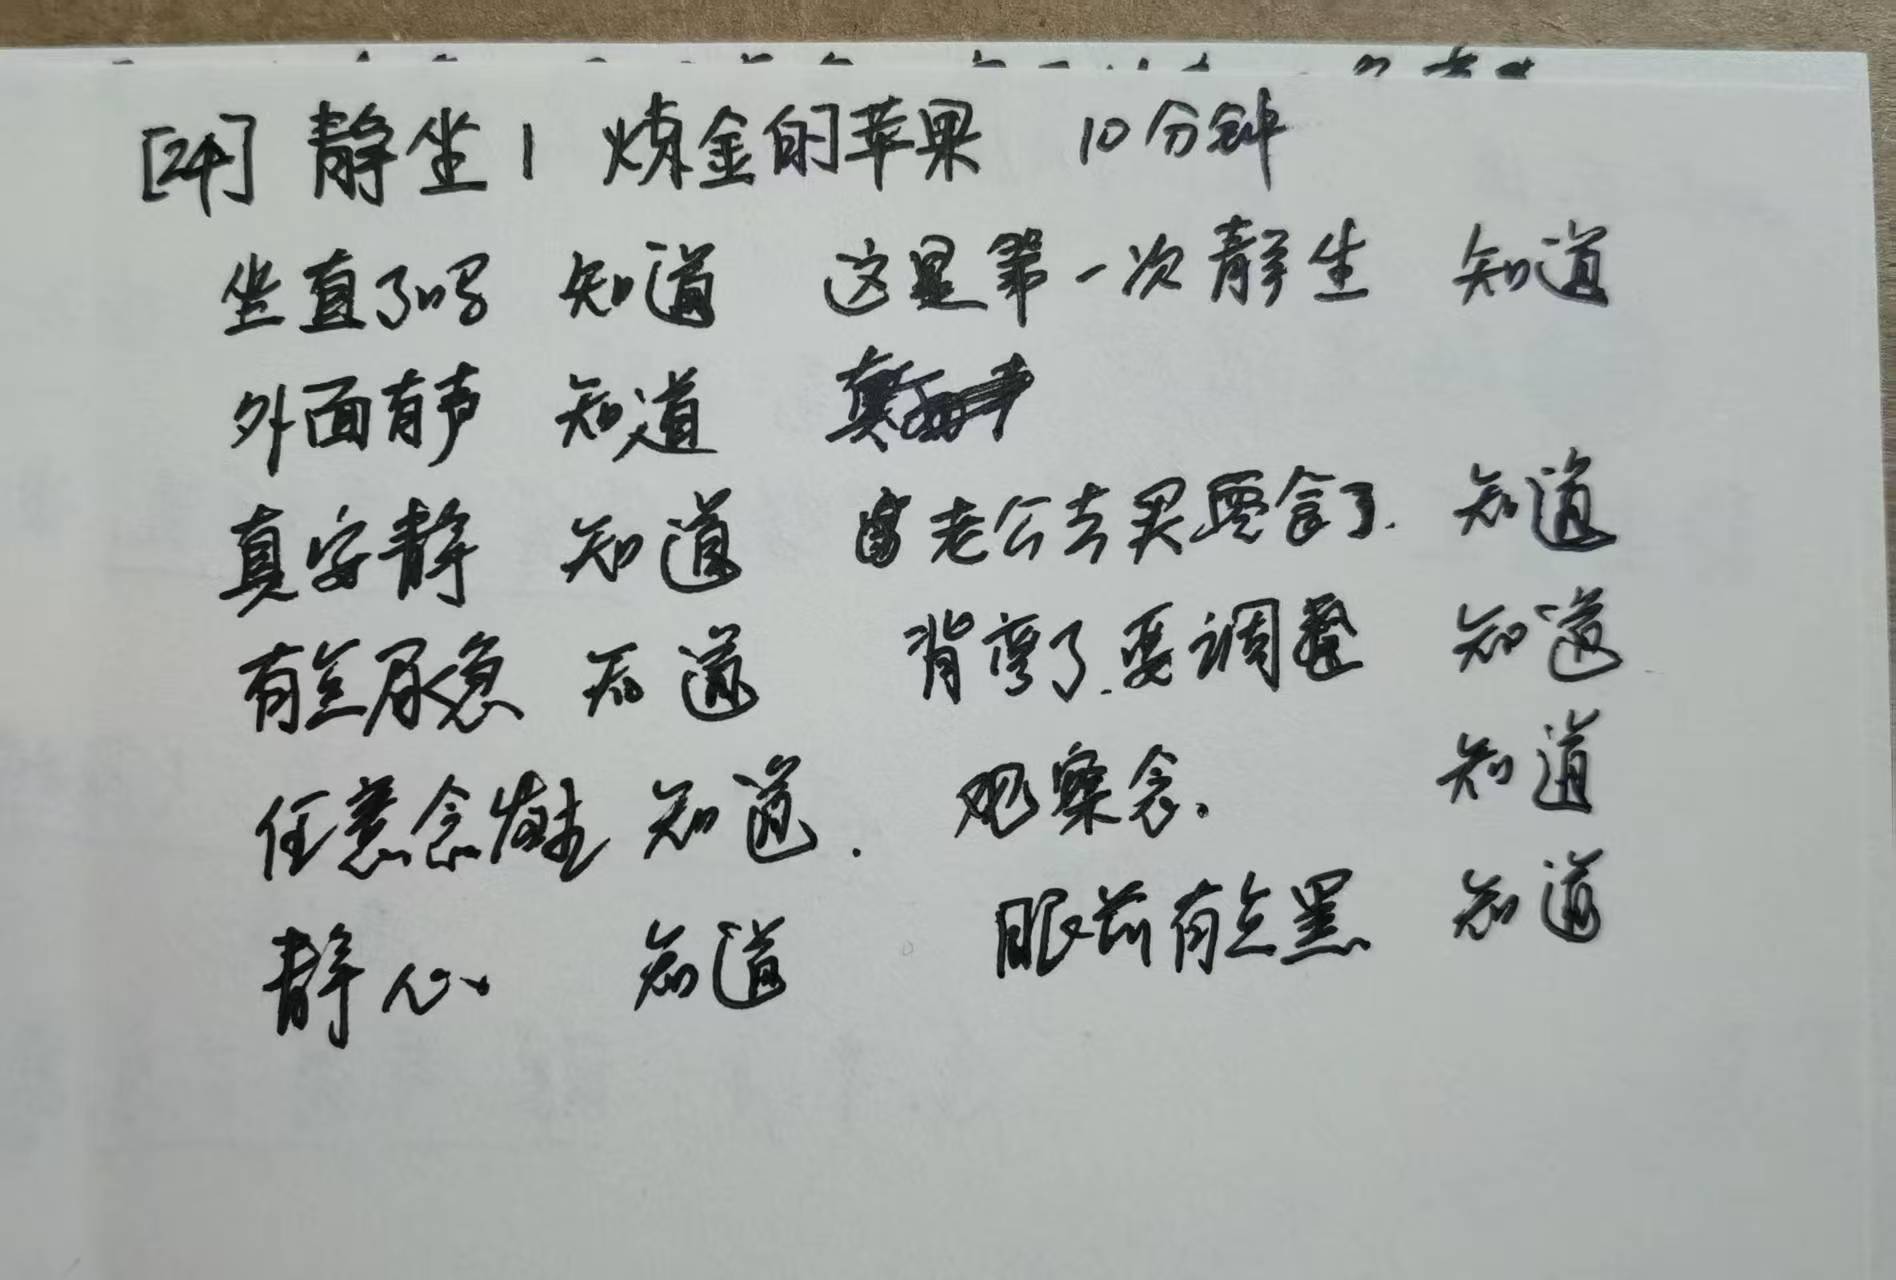 [24] 静坐1 炼金的苹果 10分钟
坐直了吗 知道 这是第一次静坐 知道
外面有声 知道
真安静 知道 老公去买零食了. 知道
有点尿急 知道 背弯了.要调整 知道
任意念发生 知道. 观察念. 知道
静心 知道 眼前有点黑 知道